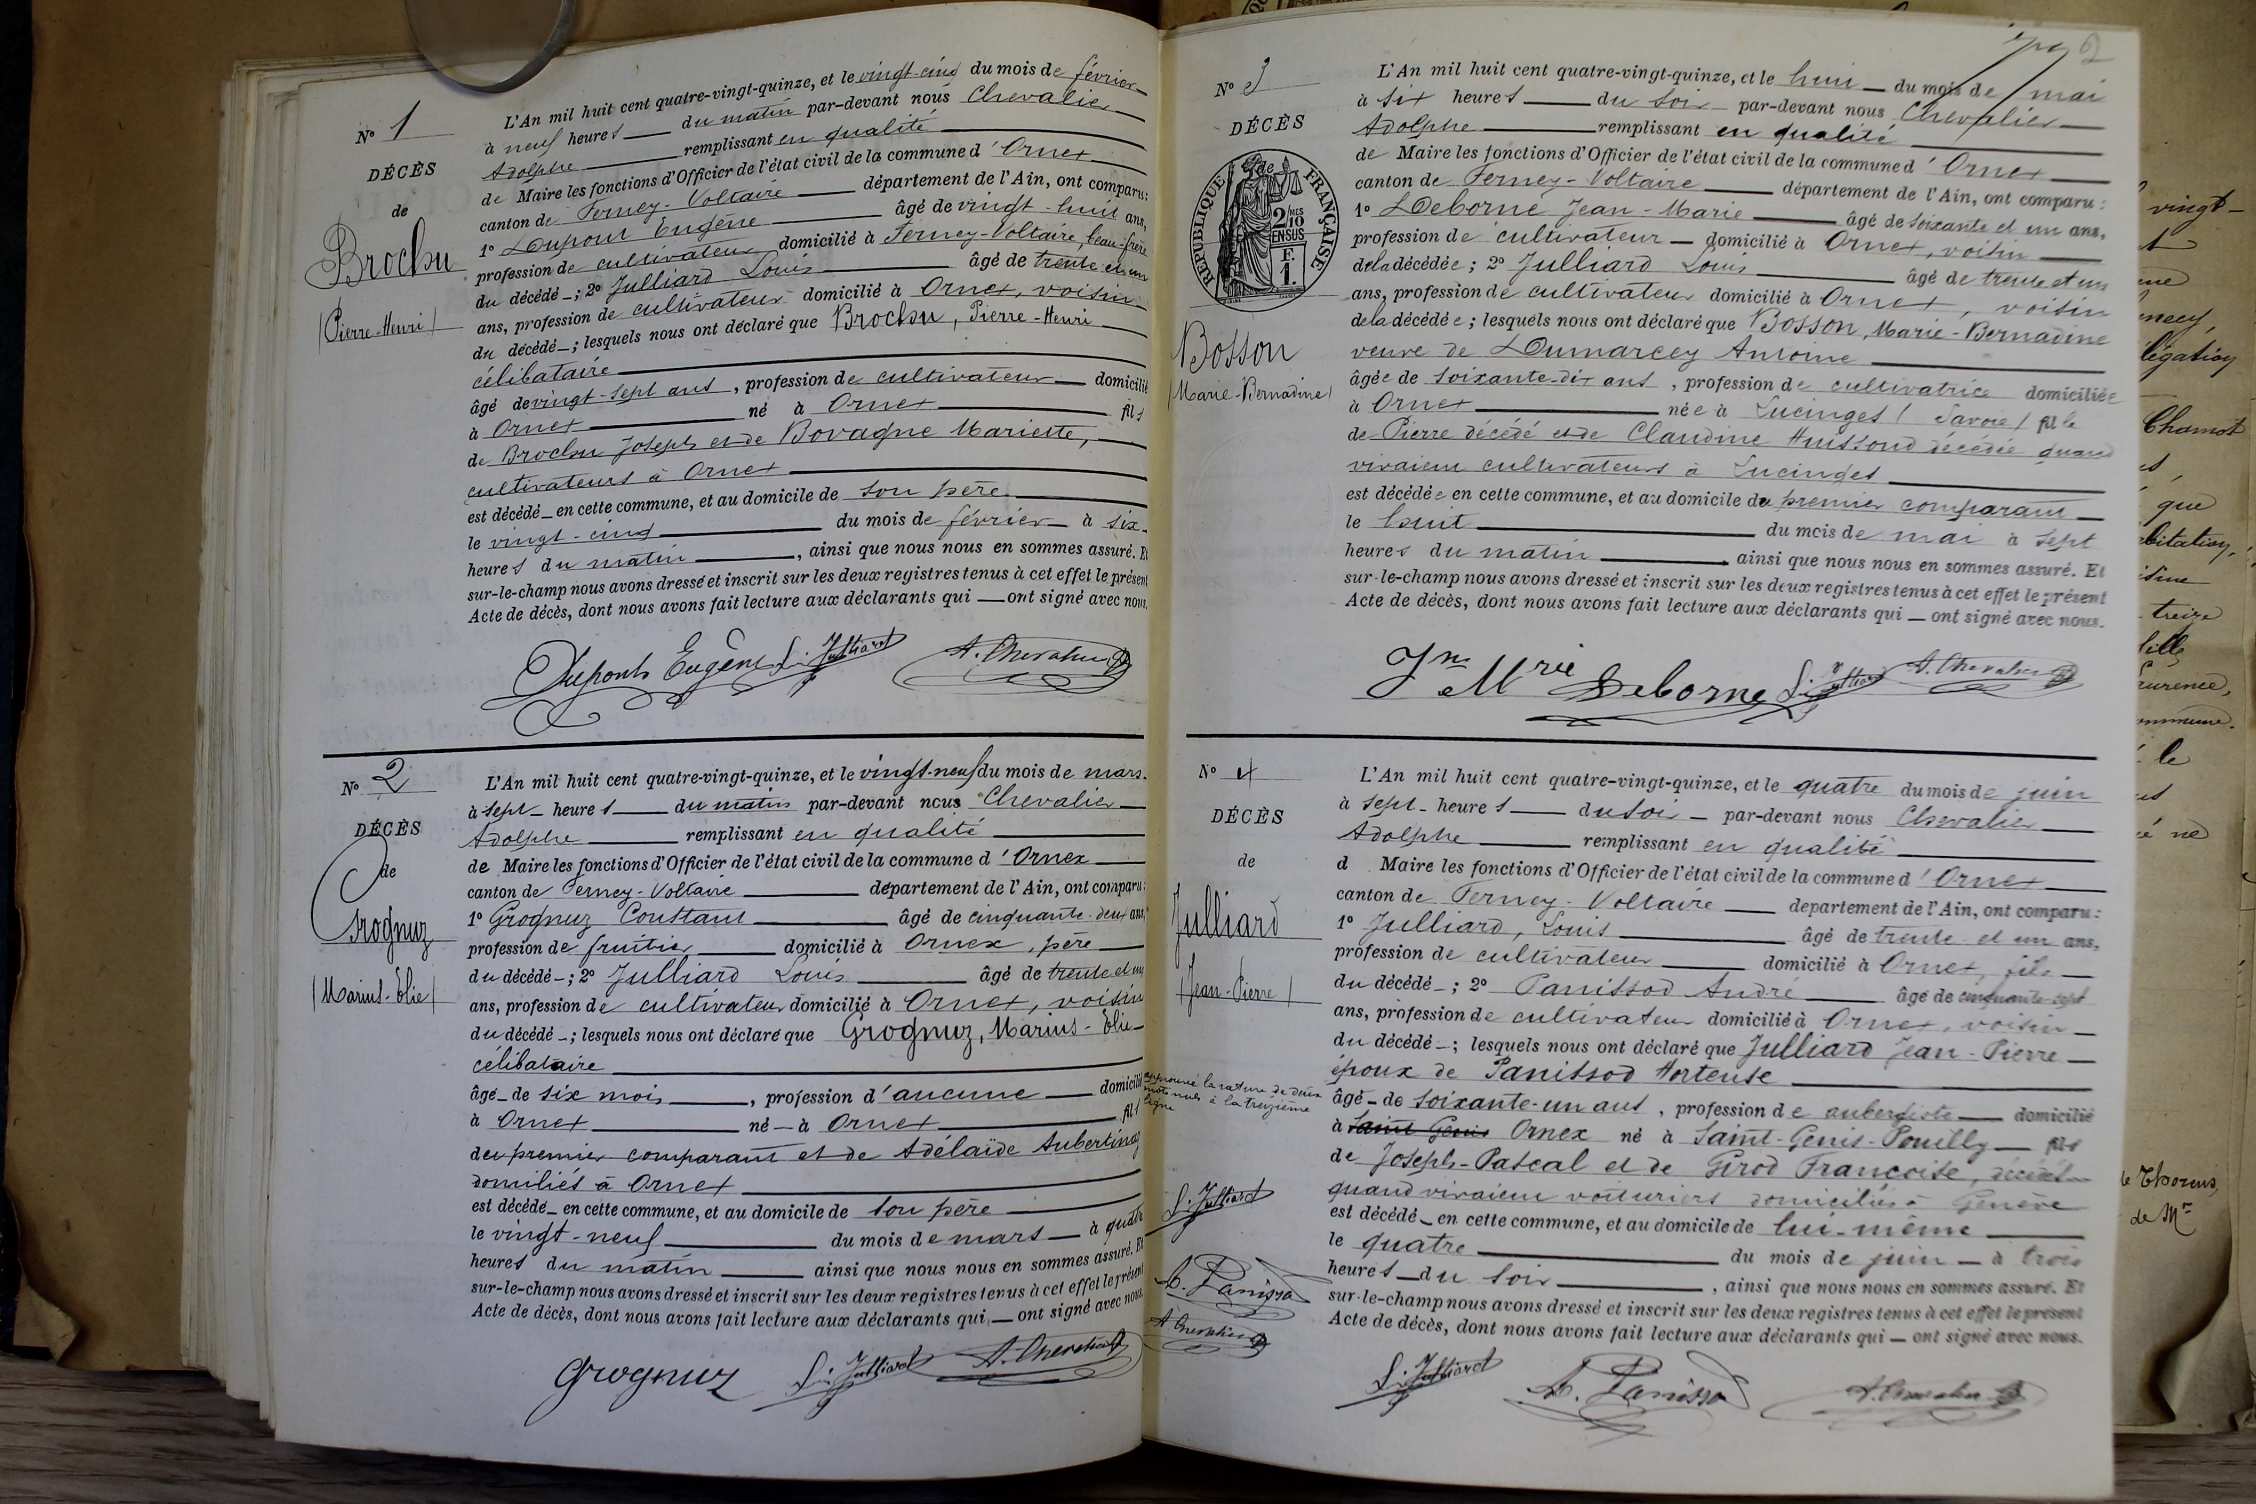 N° 1
DÉCÈS
de
Brochu
(Pierre-Henri)
L'An mil huit cent quatre-vingt-quinze, et le vingt-cinq du mois de février
à neuf heures du matin par-devant nous Chevalier
Adolphe remplissant en qualité
de Maire les fonctions d'Officier de l'état civil de la commune d'Ornex
canton de Ferney-Voltaire département de l'Ain, ont comparu:
1° Dupont Eugène âgé de vingt-huit ans,
profession de cultivateur domicilié à Ferney-Voltaire, beau-frère
du décédé ; 2° Julliard Louis âgé de trente et un
ans, profession de cultivateur domicilié à Ornex, voisin
du décédé ; lesquels nous ont déclaré que Brochu, Pierre-Henri
célibataire
âgé de vingt-sept ans, profession de cultivateur domicilié
à Ornex né à Ornex fils
de Brochu Joseph et de Bovagne Mariette,
cultivateurs à Ornex
est décédé en cette commune, et au domicile de son père
le vingt-cinq du mois de février à six
heures du matin, ainsi que nous nous en sommes assuré. Et
sur-le-champ nous avons dressé et inscrit sur les deux registres tenus à cet effet le présent
Acte de décès, dont nous avons fait lecture aux déclarants qui ont signé avec nous.
Dupont Eugène L. Julliard A. Chevalier
N° 2
DÉCÈS
de
Grognuz
(Marius-Élie)
L'An mil huit cent quatre-vingt-quinze, et le vingt-neuf du mois de mars
à sept heures du matin par-devant nous Chevalier
Adolphe remplissant en qualité
de Maire les fonctions d'Officier de l'état civil de la commune d'Ornex
canton de Ferney-Voltaire département de l'Ain, ont comparu:
1° Grognuz Constant âgé de cinquante-deux ans,
profession de fruitier domicilié à Ornex, père
du décédé ; 2° Julliard Louis âgé de trente et un
ans, profession de cultivateur domicilié à Ornex, voisin
du décédé ; lesquels nous ont déclaré que Grognuz, Marius-Élie
célibataire
âgé de six mois, profession d'aucune domicilié
à Ornex né à Ornex fils
du premier comparant et de Adélaïde Aubertinaz
domiliés à Ornex
est décédé en cette commune, et au domicile de son père
le vingt-neuf du mois de mars à quatre
heures du matin ainsi que nous nous en sommes assuré. Et
sur-le-champ nous avons dressé et inscrit sur les deux registres tenus à cet effet le présent
Acte de décès, dont nous avons fait lecture aux déclarants qui ont signé avec nous.
Grognuz L. Julliard A. Chevalier
2
N° 3
DÉCÈS
de
RÉPUBLIQUE FRANÇAISE
2/10 MES
EN SUS
F.
1.
Bosson
(Marie-Bernadine)
L'An mil huit cent quatre-vingt-quinze, et le huit du mois de mai
à six heures du soir par-devant nous Chevalier
Adolphe remplissant en qualité
de Maire les fonctions d'Officier de l'état civil de la commune d'Ornex
canton de Ferney-Voltaire département de l'Ain, ont comparu:
1° Deborne Jean-Marie âgé de soixante et un ans,
profession de cultivateur domicilié à Ornex, voisin
de la décédée ; 2° Julliard Louis âgé de trente et un
ans, profession de cultivateur domicilié à Ornex, voisin
de la décédée ; lesquels nous ont déclaré que Bosson, Marie-Bernadine
veuve de Dumarcey Antoine
âgée de soixante-dix ans, profession de cultivatrice domiciliée
à Ornex née à Lucinges (Savoie) fille
de Pierre décédé et de Claudine Huissoud décédée quand
vivaient cultivateurs à Lucinges
est décédée en cette commune, et au domicile du premier comparant
le huit du mois de mai à sept
heures du matin, ainsi que nous nous en sommes assuré. Et
sur-le-champ nous avons dressé et inscrit sur les deux registres tenus à cet effet le présent
Acte de décès, dont nous avons fait lecture aux déclarants qui ont signé avec nous.
Jn Mrie Deborne L. Julliard A. Chevalier
N° 4
DÉCÈS
de
Julliard
(Jean-Pierre)
L'An mil huit cent quatre-vingt-quinze, et le quatre du mois de juin
à sept heures du soir par-devant nous Chevalier
Adolphe remplissant en qualité
d Maire les fonctions d'Officier de l'état civil de la commune d'Ornex
canton de Ferney-Voltaire département de l'Ain, ont comparu:
1° Julliard, Louis âgé de trente et un ans,
profession de cultivateur domicilié à Ornex, fils
du décédé ; 2° Panissod André âgé de cinquante-sept
ans, profession de cultivateur domicilié à Ornex, voisin
du décédé ; lesquels nous ont déclaré que Julliard Jean-Pierre
époux de Panissod Hortense
âgé de soixante-un ans, profession de aubergiste domicilié
à Saint Genis Ornex né à Saint-Genis-Pouilly fils
de Joseph-Pascal et de Girod Françoise, décédés
quand vivaient voituriers domiciliés à Genève
est décédé en cette commune, et au domicile de lui-même
le quatre du mois de juin à trois
heures du soir, ainsi que nous nous en sommes assuré. Et
sur-le-champ nous avons dressé et inscrit sur les deux registres tenus à cet effet le présent
Acte de décès, dont nous avons fait lecture aux déclarants qui ont signé avec nous.
approuvé la rature de deux
mots nuls à la treizième
ligne
L. Julliard
A. Panisso
A. Chevalier
L. Julliard A. Panisso A. Chevalier
vingt-
légation
Chamot
que
treize
fille
Laurence,
commune.
le
né
de Thorens,
de Mr